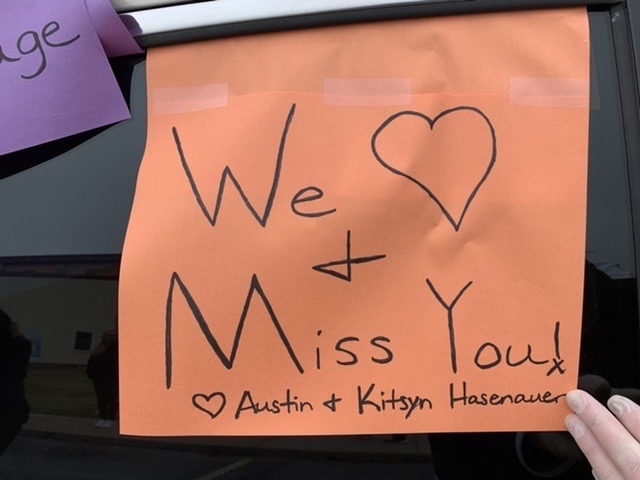 age
We ♡
+
Miss You!
♡ Austin + Kitsyn Hasenauer